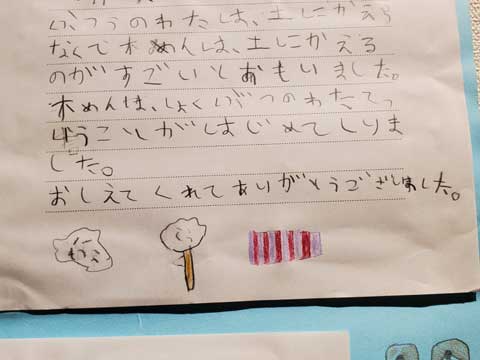 ふつうのわたしは、土にかえら
なくて木めんは、土にかえる
のがすごいとおもいました。
木めんは、しょくぶつのわたってい
うことがはじめてしりま
した。
おしえてくれてありがとうございました。
わた